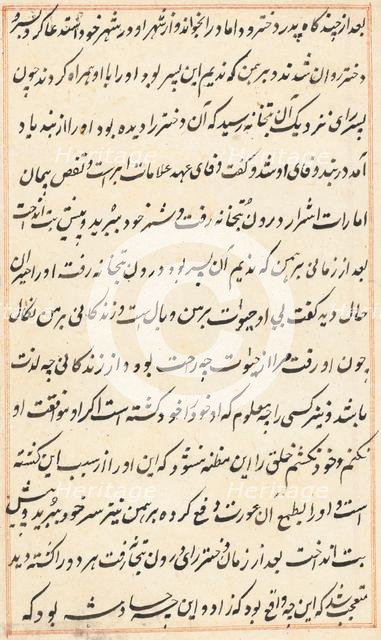 بعد از چند گاه پدر دختر و داماد را بخواند و از شهر او در شهر خود استدعا کرد پسر و
دختر روان شدند و برهمن که ندیم این پسر بود او را با او همراه کردند چون
پسر رای نزدیک آن بتخانه رسید که آن دختر را دیده بود او را از نذر یاد
آمد در بند وفای او شد و گفت وفای عهد علامات ابرار است و نقض پیمان
امارات اشرار درون بتخانه رفت و سر خود ببرید و پیش بت انداخت
بعد از زمانی برهمن که ندیم آن پسر بود درون بتخانه رفت او را حیران
حال دید گفت بی او حیات بر من وبال است و زندگانی بر من نکال
چون او رفت مرا از حیات چه راحت بود و از زندگانی چه لذت
باشد و نیز کسی را چه معلوم که او خود را خود کشته است اگر او موافقت او
نکنم و خود نکشم خلق را این مظنه شود که این او را از سبب این کشته
است و او را بطمع آن عورت دفع کرده برهمن نیز سر خود ببرید و پیش
بت انداخت بعد از زمان دختر رای درون بتخانه رفت هر دو را کشته دید
متعجب شد که این چه واقع بود که زاد و این چه حادثه بود که
Heritage
Heritage
Heritage
Heritage